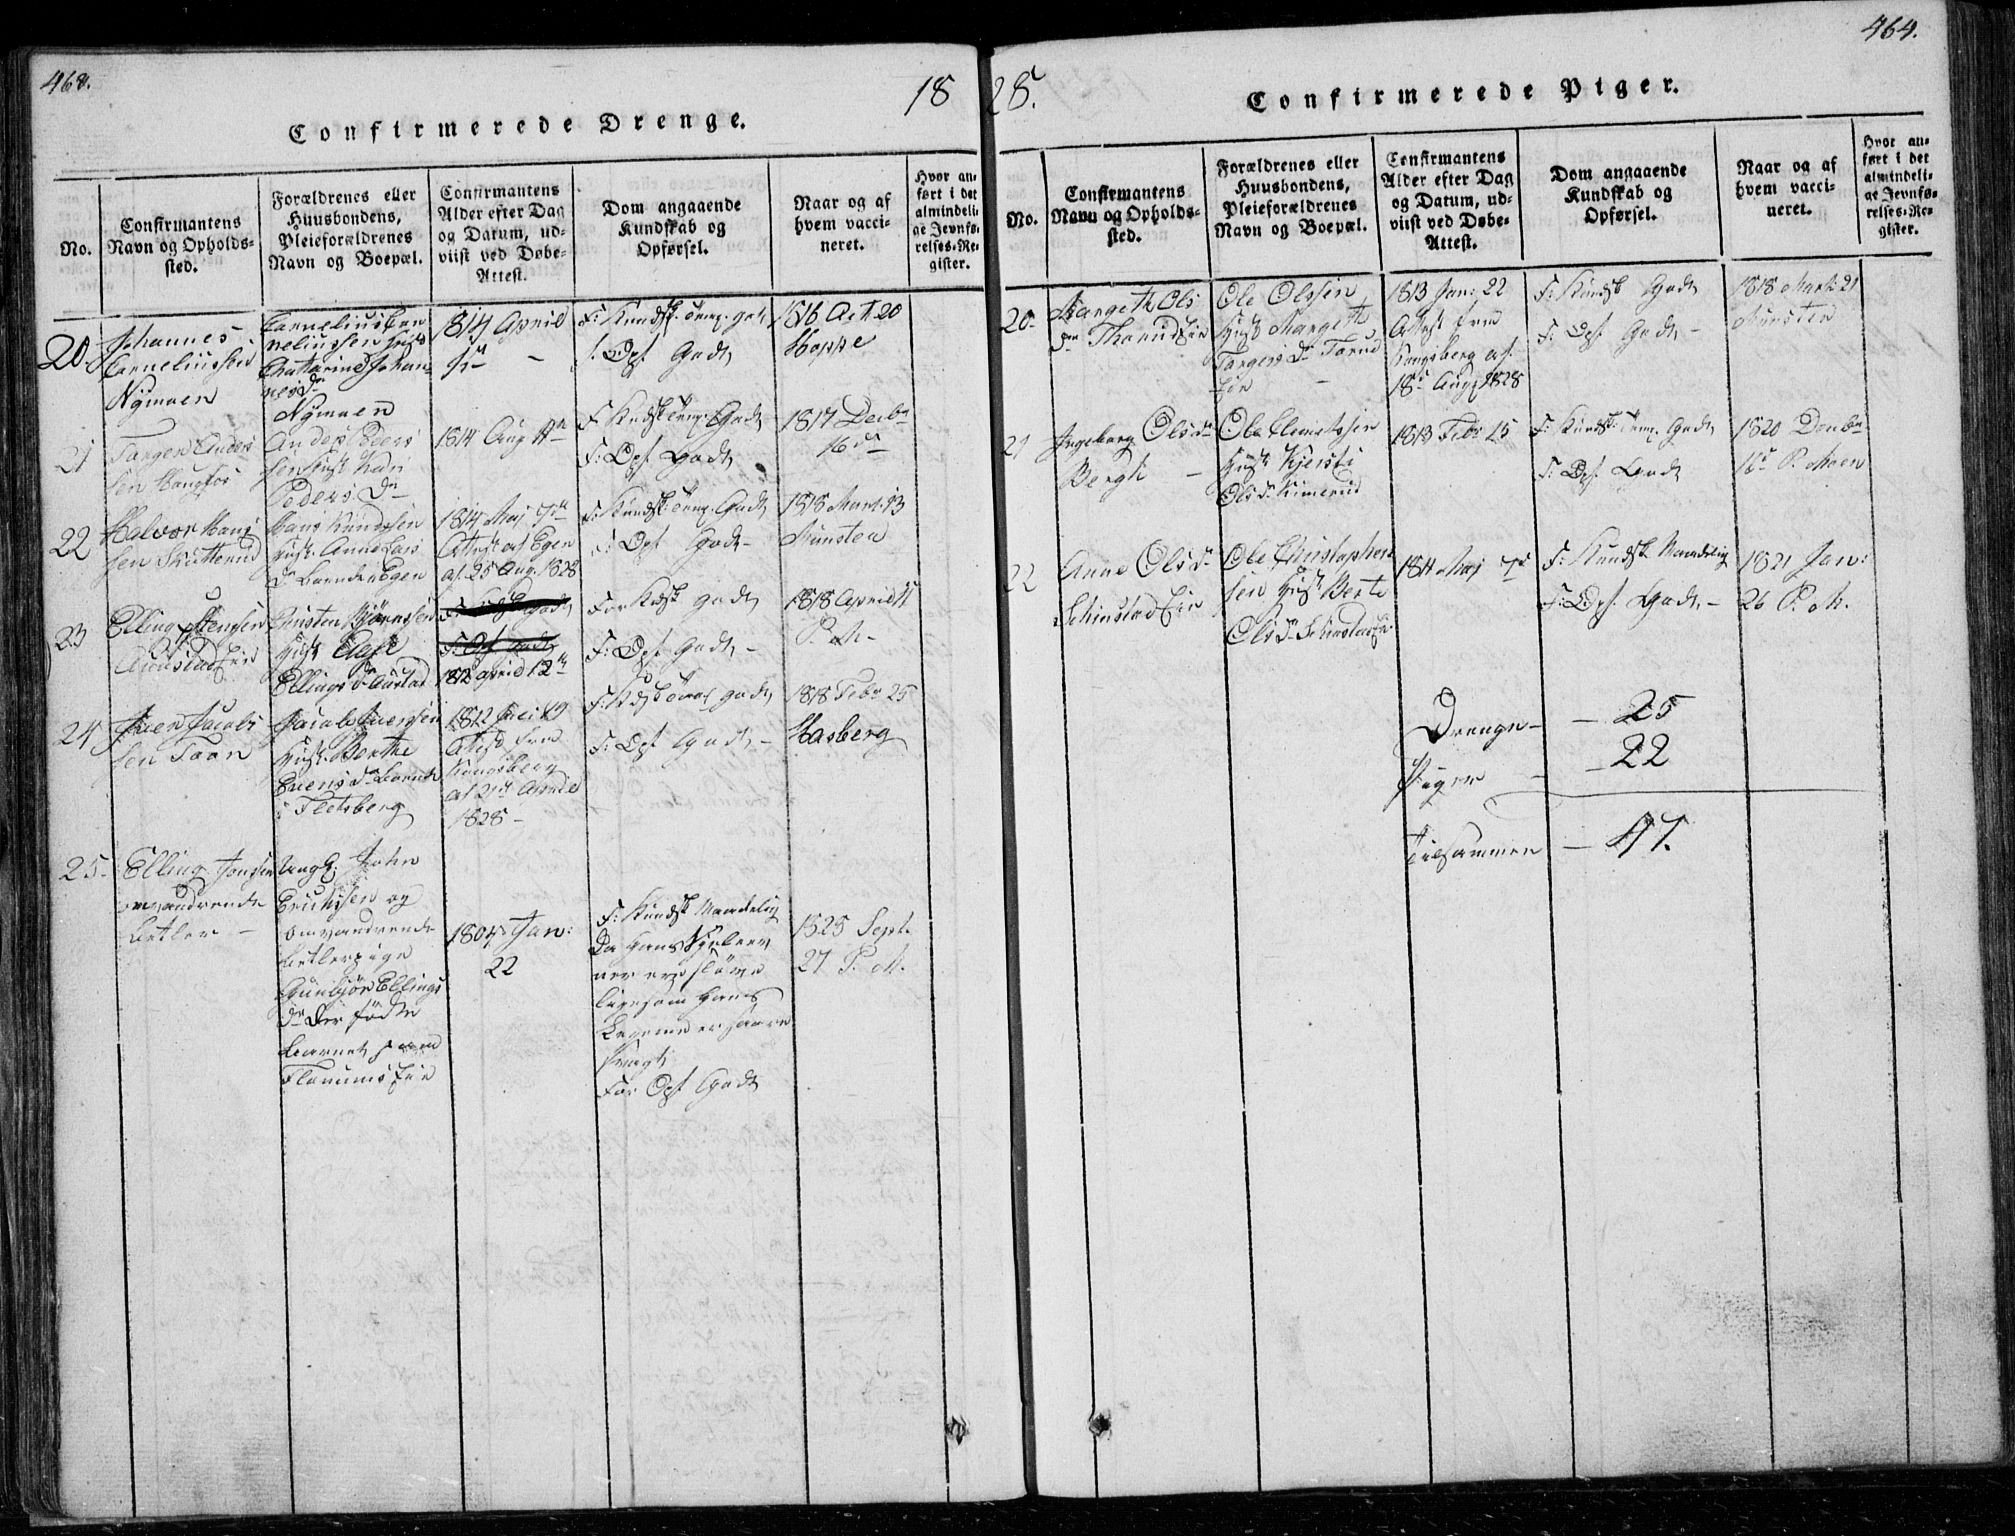 468.
18
Confirmerede Drenge.
No.
Confirmantens
Navn og Opholds-
sted.
Forældrenes eller
Huusbondens,
Pleieforældrenes
Navn og Boepæl.
Confirmantens
Alder efter Dag
og Datum, ud-
viist ved Døbe-
Attest.
Dom angaaende
Kundskab og
Opførsel.
Naar og af
hvem vacci-
neret.
Hvor an-
ført i det
almindeli-
ge Jevnfø-
relses-Re-
gister.
20.
Johannes
Corneliussen
Nymoen
Cornelius Cor
neliussen Hust
Chatharine Johan
nesdr
Nymoen
1814 April
F: Kundsk: temp. godt
F. Opf. Godt
1816 Oct. 20
Hoppe
21
Torgen Anders
sen Haugfos
Anders Peders
sen Hust Kari
Peders Dr
1814 Aug 4de
F: Kundsk temp. Godt
F: Opf. Godt
1817 Decbr
16de
22
Halvor Hans
sen Skutterud
Hans Knudssen
Hust: Anne Lars
Dr Egen
1814 Maj 7de
Attest af Egen
af 25 Aug. 1828
F: Kundsk temp. Godt
F: Opf Godt
1818 Mart. 13
Munsten
23
Elling
Bjørnssen
Hust: Aase
Ellings Dr Austad
1812 April 12te
For Kdsk godt
F: Opf. Godt -
1818 April 11
P. M.
24
Iver Jacobs
sen Faan
Jacob Iverssen
Hust: Berthe
Evens Dr
i Flesberg
1812 Juli 19
Attest fra
Kongsberg
af 21de April
1828 -
F: godt
F: Opf Godt -
1818 Febr 25
Hasberg
25.
Elling Jonsen
omvandrende
betler -
Ungk. John
Erichsen og
omvandrende
betlerpige
Gunbjør Ellings
Dr Der fødte
Barnet paa
Flonums Eie
1804 Jan:
22
F: Kundsk Maadelig
Da Hans
ner ere sløve
ligesom Hans
Legeme er saare
svagt
For Opf Godt
1825 Sept.
27 P. M.
464.
28.
Confirmerede Piger.
No.
Confirmantens
Navn og Opholds-
sted.
Forældrenes eller
Huusbondens,
Pleieforældrenes
Navn og Boepæl.
Confirmantens
Alder efter Dag
og Datum, ud-
viist ved Døbe-
Attest.
Dom angaaende
Kundskab og
Opførsel.
Naar og af
hvem vacci-
neret.
Hvor an-
ført i det
almindeli-
ge Jevnfø-
relses-Re-
gister.
20.
Margeth Ols
Dr Thorud Eie
Ole Olssen
Hust Margeth
Torgers Dr Torud
Eie
1813 Jan: 22
Attest fra
Kongsberg af
18de Aug 1828
F: Kundsk Godt
F: Opf. Godt -
1818 Mart: 21
Munsten
21
Ingeborg Ols Dr
Bergh -
Ole Clemetssen
Hust: Kjersti
Ols Dr Kimerud
1813 Febr 15
F: Kundsk: temp. Godt
F: Opf. Godt
1820 Decbr
16de P. Moen
22
Anne Ols Dr
Schinstad Eie
Ole Christophers
sen Hust Berte
Ols Dr Schinstad Eie
1811 Maj 7de
F: Kundsk Maadelig
F: Opf. Godt -
1821 Jan:
26 P. M.
Drenge - 25
Piger - 22
Tilsammen - 47.